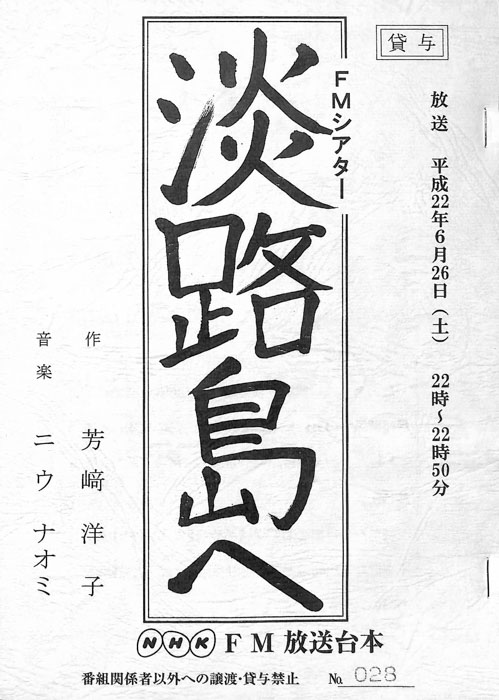 貸与
放送 平成22年6月26日(土) 22時~22時50分
FMシアター
淡路島へ
作 芳﨑洋子
音楽 ニウナオミ
NHK FM放送台本
番組関係者以外への譲渡・貸与禁止 No. 028